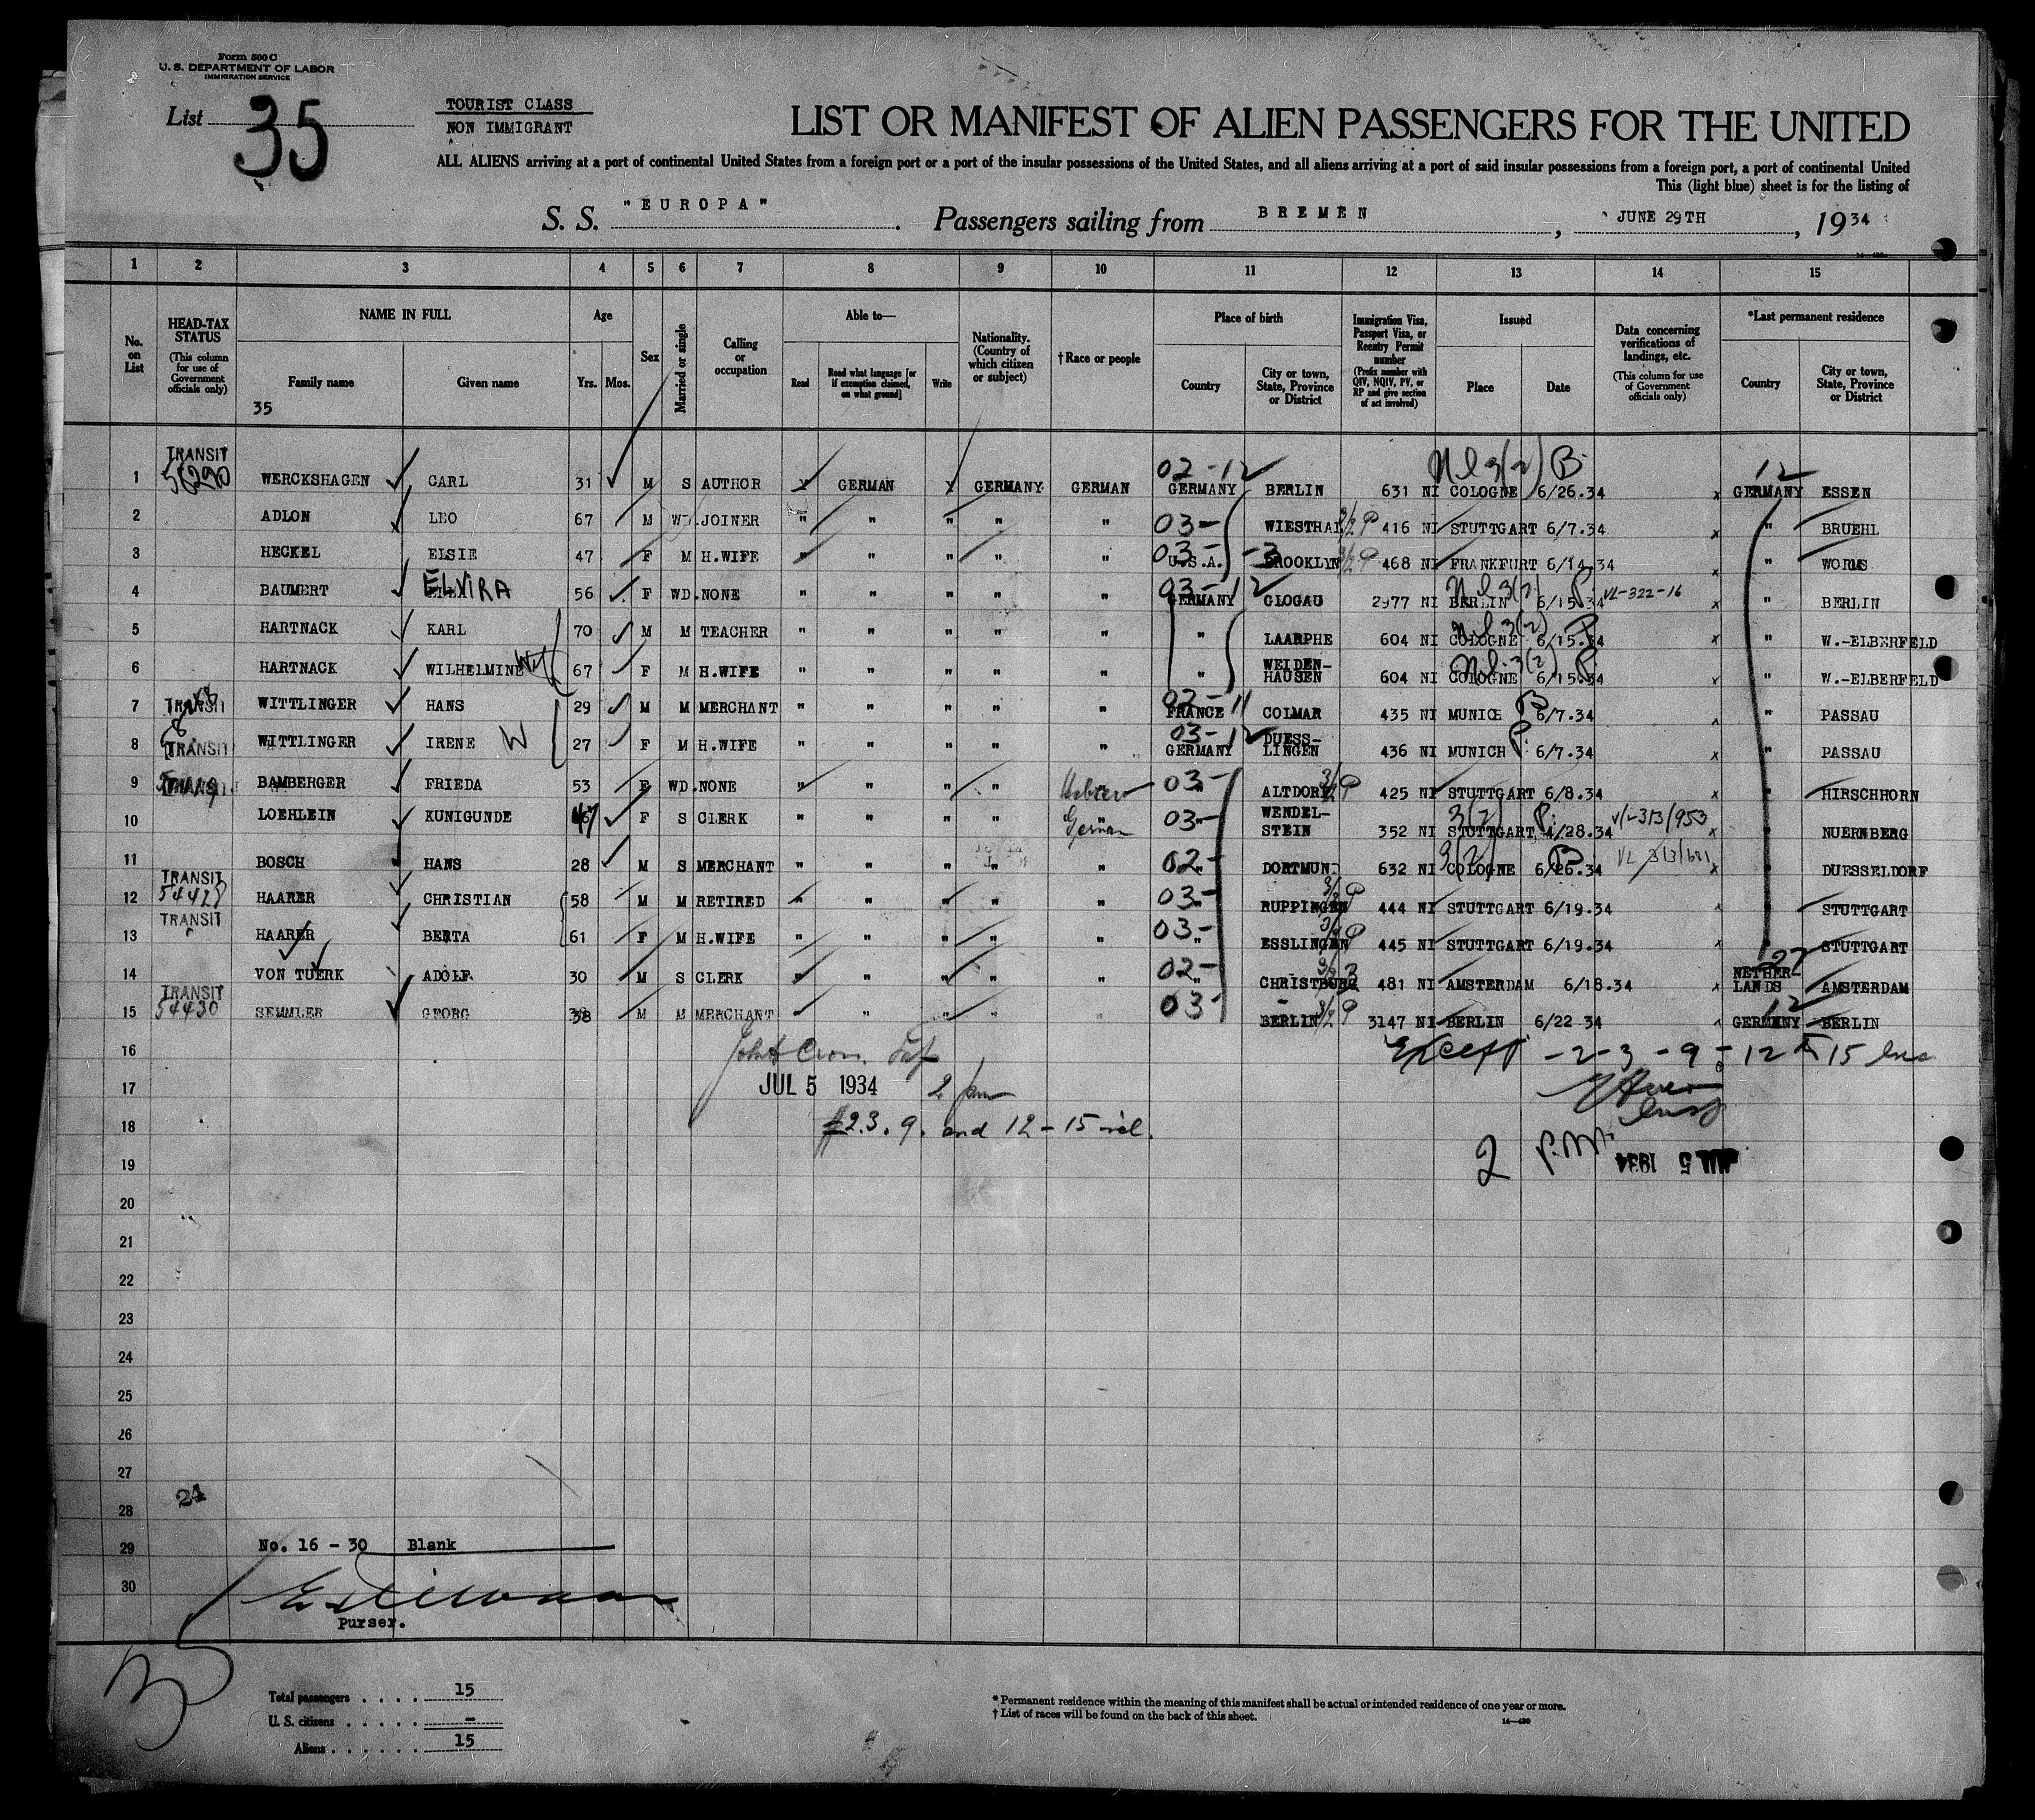 Form 500 C
U. S. DEPARTMENT OF LABOR
IMMIGRATION SERVICE
List 35
TOURIST CLASS
NON IMMIGRANT
LIST OR MANIFEST OF ALIEN PASSENGERS FOR THE UNITED
ALL ALIENS arriving at a port of continental United States from a foreign port or a port of the insular possessions of the United States, and all aliens arriving at a port of said insular possessions from a foreign port, a port of continental United
This (light blue) sheet is for the listing of
S. S. "EUROPA" . Passengers sailing from BREMEN , JUNE 29TH , 1934
1 2 3 4 5 6 7 8 9 10 11 12 13 14 15
No. on List
HEAD-TAX STATUS (This column for use of Government officials only)
NAME IN FULL
Family name
Given name
35
Age
Yrs. Mos.
Sex
Married or single
Calling or occupation
Able to—
Read
Read what language [or if exemption claimed, on what ground]
Write
Nationality. (Country of which citizen or subject)
†Race or people
Place of birth
Country
City or town, State, Province or District
Immigration Visa, Passport Visa, or Reentry Permit number (Prefix number with QIV, NQIV, PV, or RP and give section of act involved)
Issued
Place
Date
Data concerning verifications of landings, etc. (This column for use of Government officials only)
*Last permanent residence
Country
City or town, State, Province or District
TRANSIT 02-12 Nl 3(2) B 12
1 WERCKSHAGEN CARL 31 M S AUTHOR Y GERMAN Y GERMANY GERMAN GERMANY BERLIN 631 NI COLOGNE 6/26.34 x GERMANY ESSEN
2 ADLON LEO 67 M WD. JOINER " " " " " 03- WIESTHAL 3/2 P 416 NI STUTTGART 6/7.34 x " BRUEHL
3 HECKEL ELSIE 47 F M H.WIFE " " " " " 03- U.S.A. -3 BROOKLYN 3/2 P 468 NI FRANKFURT 6/14.34 x " WORMS
4 BAUMERT ELVIRA 56 F WD. NONE " " " " " 03-12 GERMANY GLOGAU 2977 NI BERLIN Nl 3(2) P 6/15.34 VL-322-16 x " BERLIN
5 HARTNACK KARL 70 M M TEACHER " " " " " " LAARPHE 604 NI COLOGNE Nl 3(2) P 6/15.34 x " W.-ELBERFELD
6 HARTNACK WILHELMINE 67 F M H.WIFE " " " " " " WEIDEN-HAUSEN 604 NI COLOGNE Nl 3(2) P 6/15.34 " W.-ELBERFELD
7 TRANSIT WITTLINGER HANS 29 M M MERCHANT " " " " " 02-11 FRANCE COLMAR 435 NI MUNICH B 6/7.34 " PASSAU
8 TRANSIT WITTLINGER IRENE W 27 F M H.WIFE " " " " " 03-12 GERMANY DUESS-LINGEN 436 NI MUNICH P 6/7.34 x " PASSAU
9 TRANSIT BAMBERGER FRIEDA 53 F WD. NONE " " " " Hebrew 03- " ALTDORF 3/2 P 425 NI STUTTGART 6/8.34 x " HIRSCHHORN
10 LOEHLEIN KUNIGUNDE 47 F S CLERK " " " " German 03- " WENDEL-STEIN 352 NI STUTTGART 3(2) P. 4/28.34 VL-313/953 x " NUERNBERG
11 BOSCH HANS 28 M S MERCHANT " " " " " 02- DORTMUND 632 NI COLOGNE 3(2) B 6/26.34 x " DUESSELDORF
TRANSIT
12 54428 HAARER CHRISTIAN 58 M M RETIRED " " " " " 03- " RUPPINGEN 3/2 P 444 NI STUTTGART 6/19.34 " STUTTGART
TRANSIT
13 HAARER BERTA 61 F M H.WIFE " " " " " 03- " ESSLINGEN 3/2 P 445 NI STUTTGART 6/19.34 x " STUTTGART
14 VON TUERK ADOLF 30 M S CLERK " " " " " 02- " CHRISTBURG 481 NI AMSTERDAM 6/18.34 x 27 NETHER LANDS AMSTERDAM
TRANSIT
15 54430 SEMMLER GEORG 38 M M MERCHANT " " " " " 03- BERLIN 3/2 P 3147 NI BERLIN 6/22 34 12 GERMANY BERLIN
16 Except -2-3-9-12 to 15 Inc
17 JUL 5 1934 2 pm
18 #2.3.9. and 12-15 incl.
19 2 P.M. JUL 5 1934
20
21
22
23
24
25
26
27
28 24
29 No. 16 - 30 Blank
30
Purser.
35
Total passengers . . . . 15
U. S. citizens . . . . . -
Aliens . . . . . . 15
* Permanent residence within the meaning of this manifest shall be actual or intended residence of one year or more.
† List of races will be found on the back of this sheet.
14—430